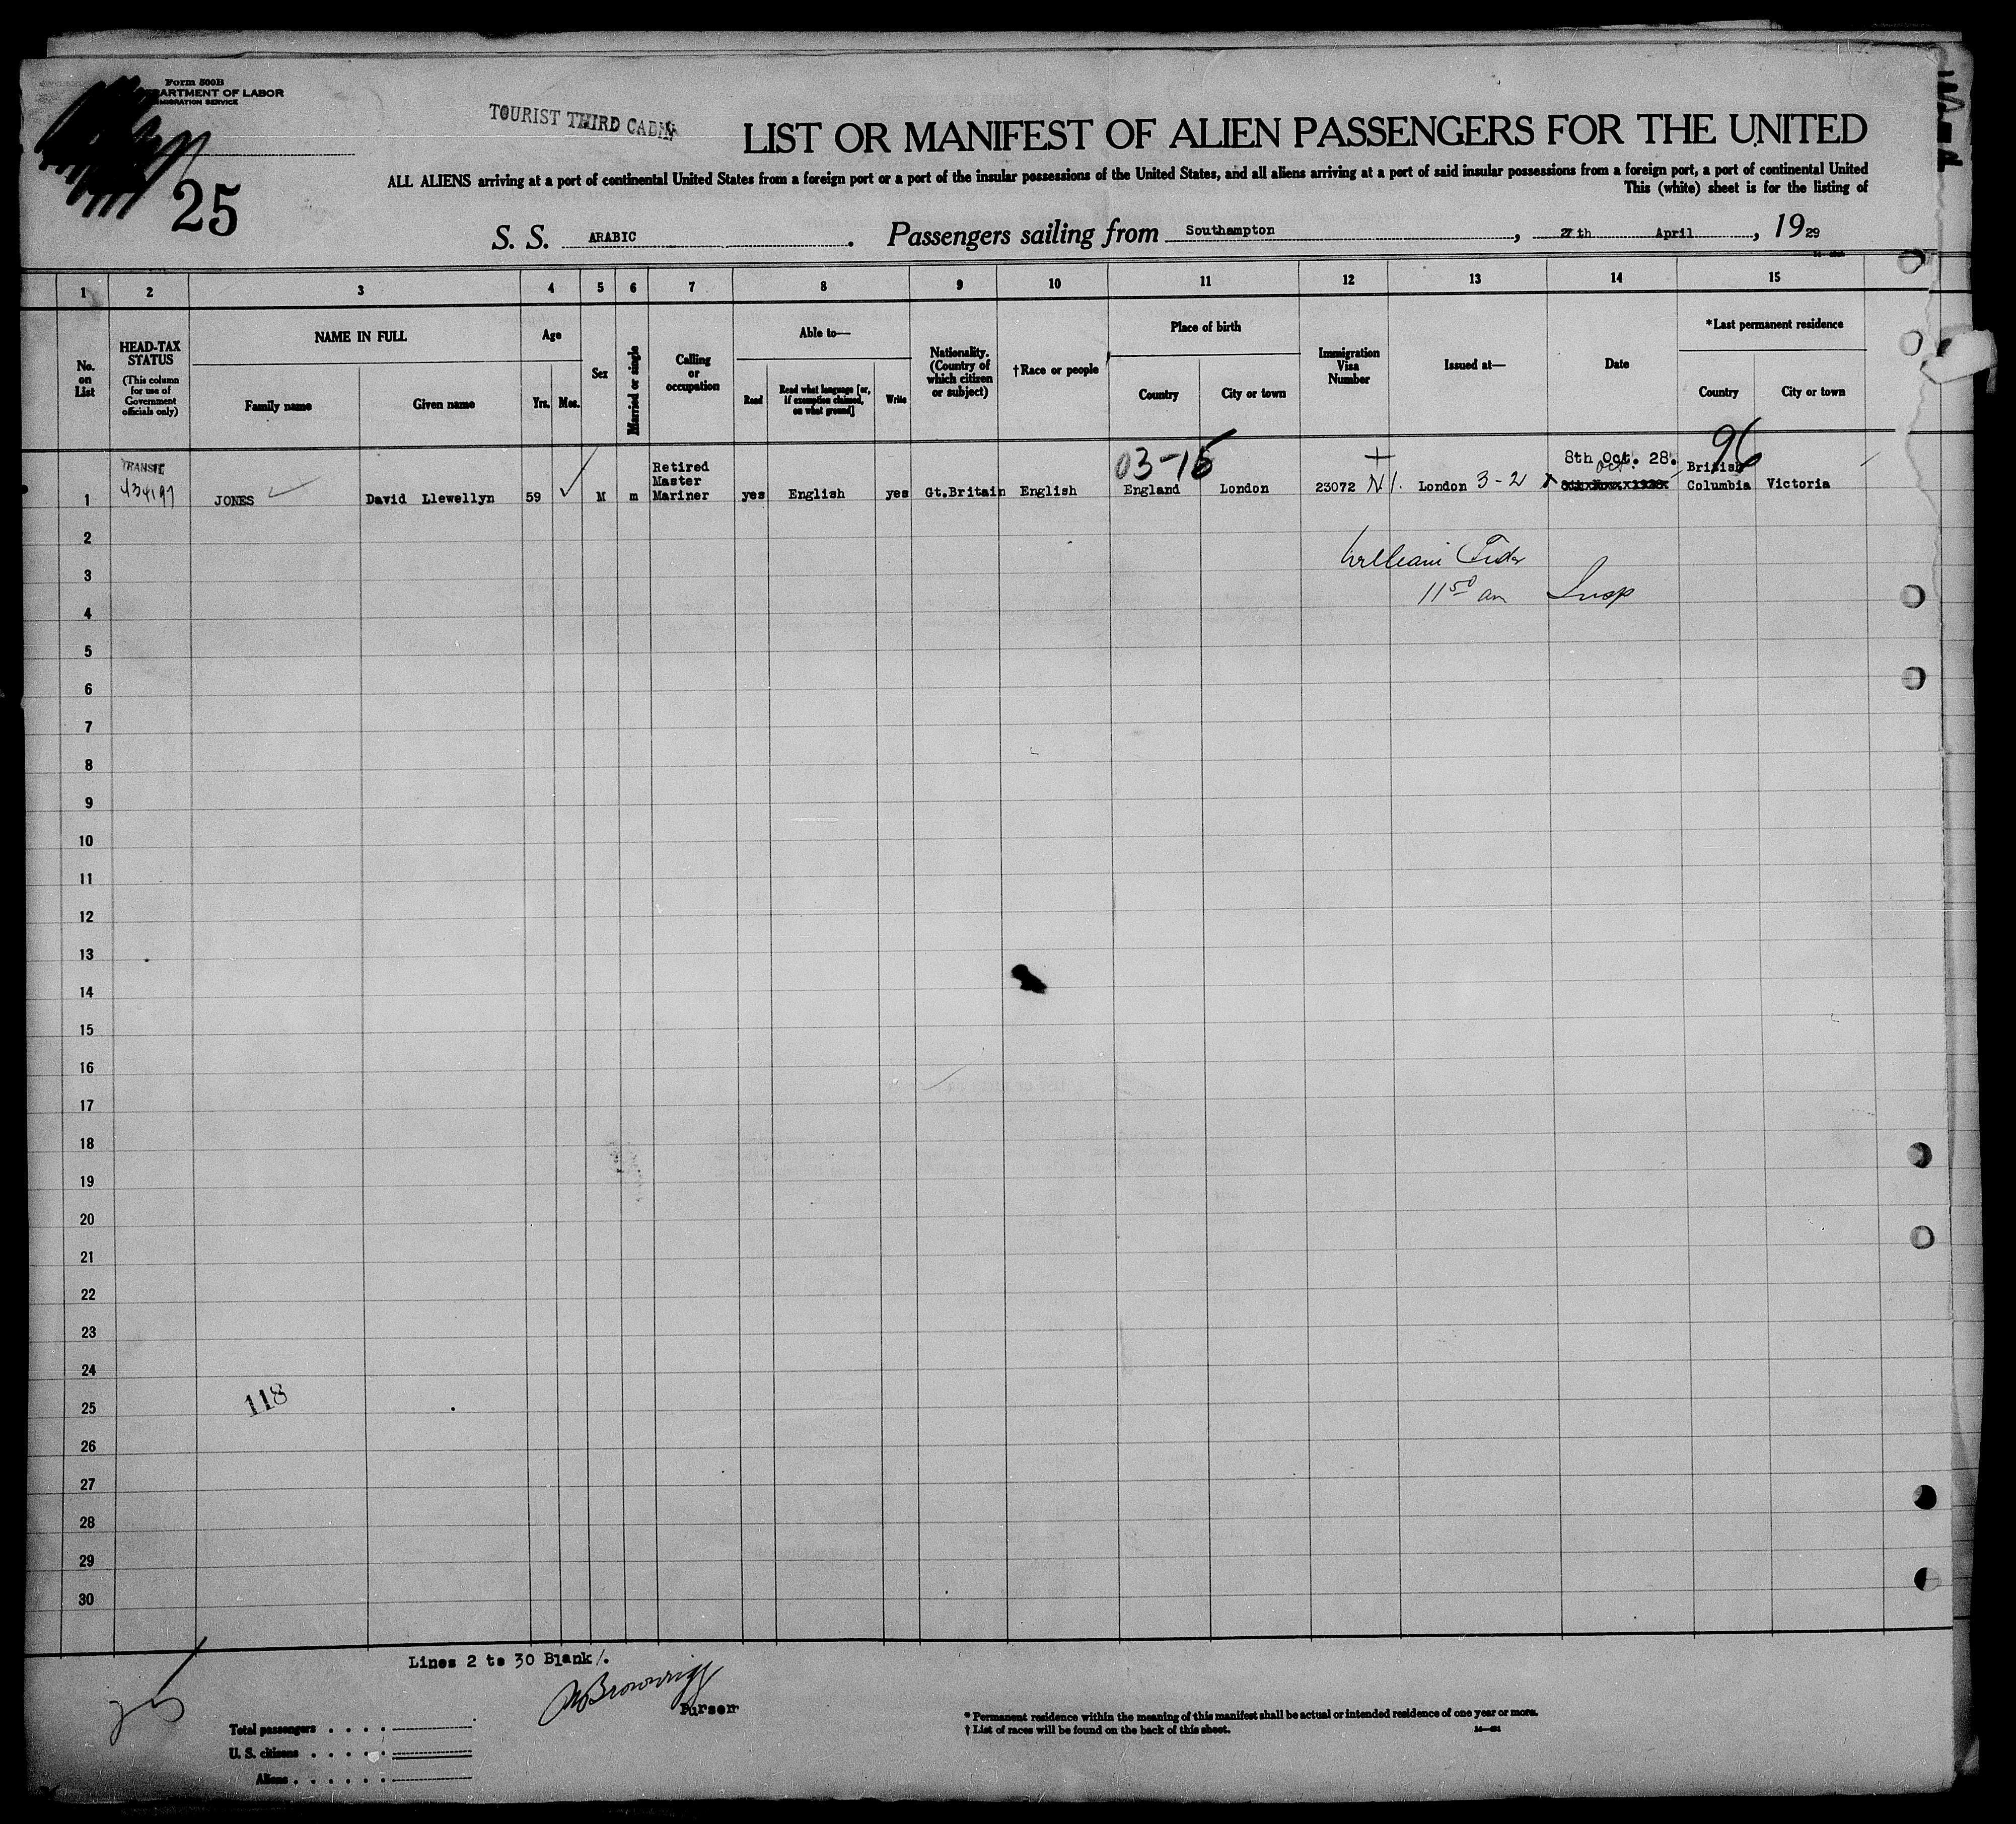 Form 500B
DEPARTMENT OF LABOR
IMMIGRATION SERVICE
TOURIST THIRD CABIN
LIST OR MANIFEST OF ALIEN PASSENGERS FOR THE UNITED
ALL ALIENS arriving at a port of continental United States from a foreign port or a port of the insular possessions of the United States, and all aliens arriving at a port of said insular possessions from a foreign port, a port of continental United
This (white) sheet is for the listing of
25
S. S. ARABIC . Passengers sailing from Southampton , 27th April , 1929
1 2 3 4 5 6 7 8 9 10 11 12 13 14 15
No. on List
HEAD-TAX STATUS
(This column for use of Government officials only)
NAME IN FULL
Family name
Given name
Age
Yrs.
Mos.
Sex
Married or single
Calling or occupation
Able to—
Read
Read what language [or, if exemption claimed, on what ground]
Write
Nationality. (Country of which citizen or subject)
†Race or people
Place of birth
Country
City or town
Immigration Visa Number
Issued at—
Date
*Last permanent residence
Country
City or town
03-15
8th Oct. 28.
96
Oct.
1 TRANSIT 434197 JONES David Llewellyn 59 M m Retired Master Mariner yes English yes Gt.Britain English England London 23072 London 3-2 British Columbia Victoria
2
William
3
11 50 am Insp
4
5
6
7
8
9
10
11
12
13
14
15
16
17
18
19
20
21
22
23
24
118
25
26
27
28
29
30
Lines 2 to 30 Blank/.
Purser
Total passengers . . . .
U. S. citizens . . . . .
Aliens . . . . . .
* Permanent residence within the meaning of this manifest shall be actual or intended residence of one year or more.
† List of races will be found on the back of this sheet.